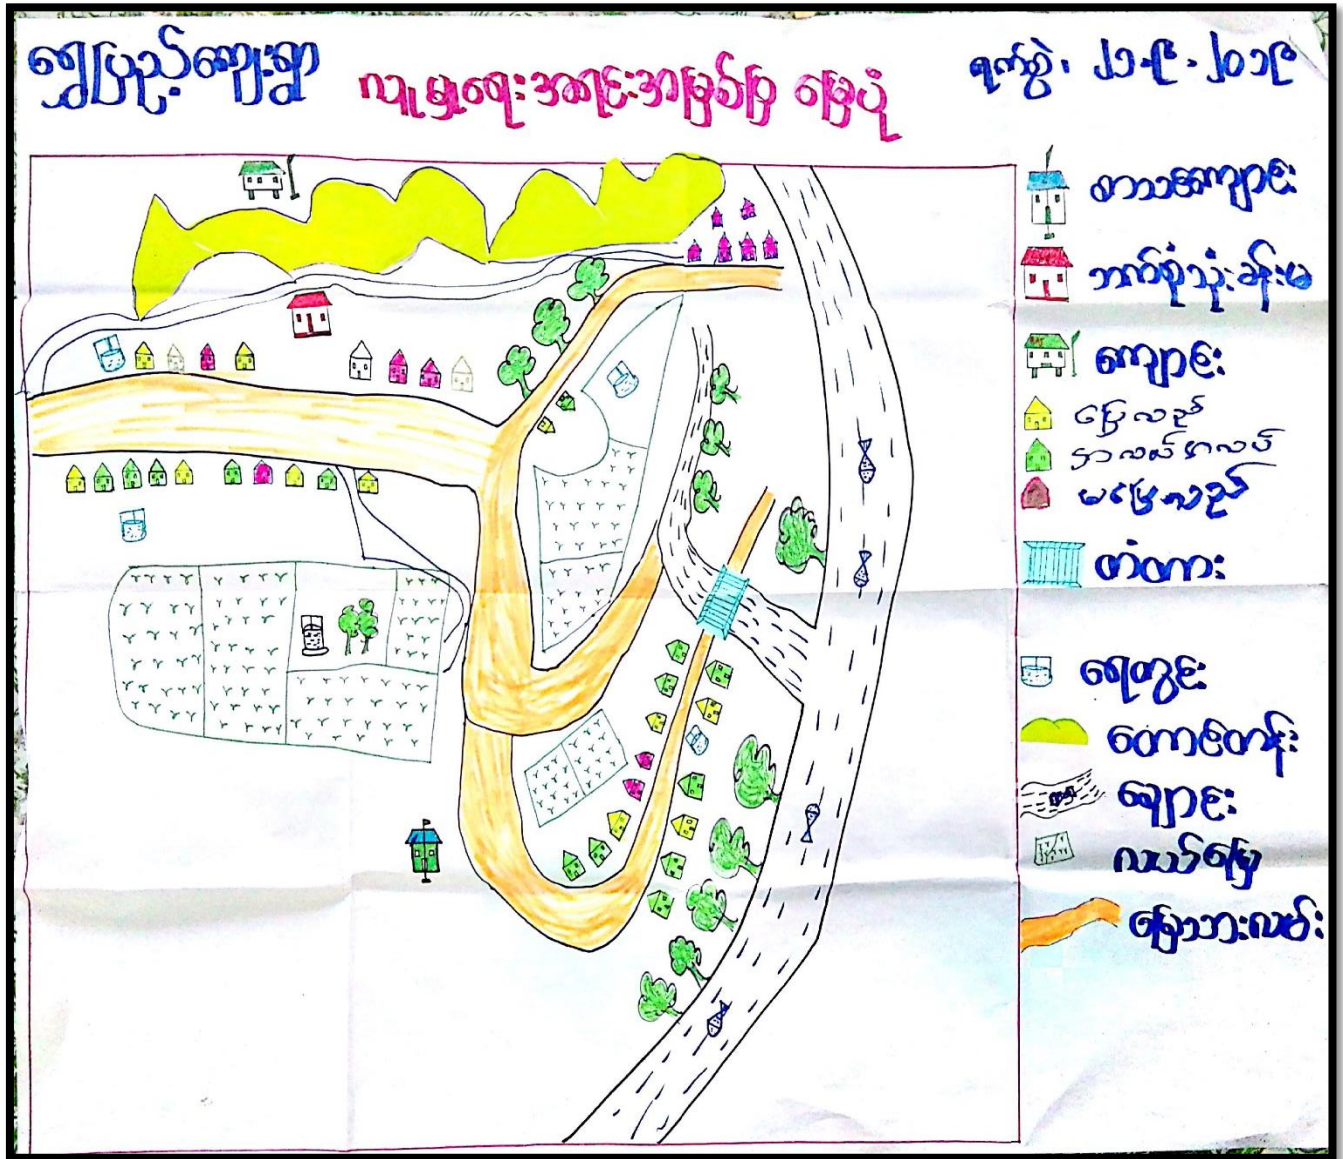 ရွှေပြည့်ကျေးရွာ
လူမှုရေးအရင်းအမြစ်ပြ မြေပုံ
ရက်စွဲ၊ ၂၁.၉.၂၀၁၉
စာသင်ကျောင်း
ဘက်စုံသုံးခန်းမ
ကျောင်း
ပြေလည်
အလယ်အလပ်
မပြေလည်
တံတား
ရေတွင်း
တောင်တန်း
ချောင်း
လယ်မြေ
မြေသားလမ်း